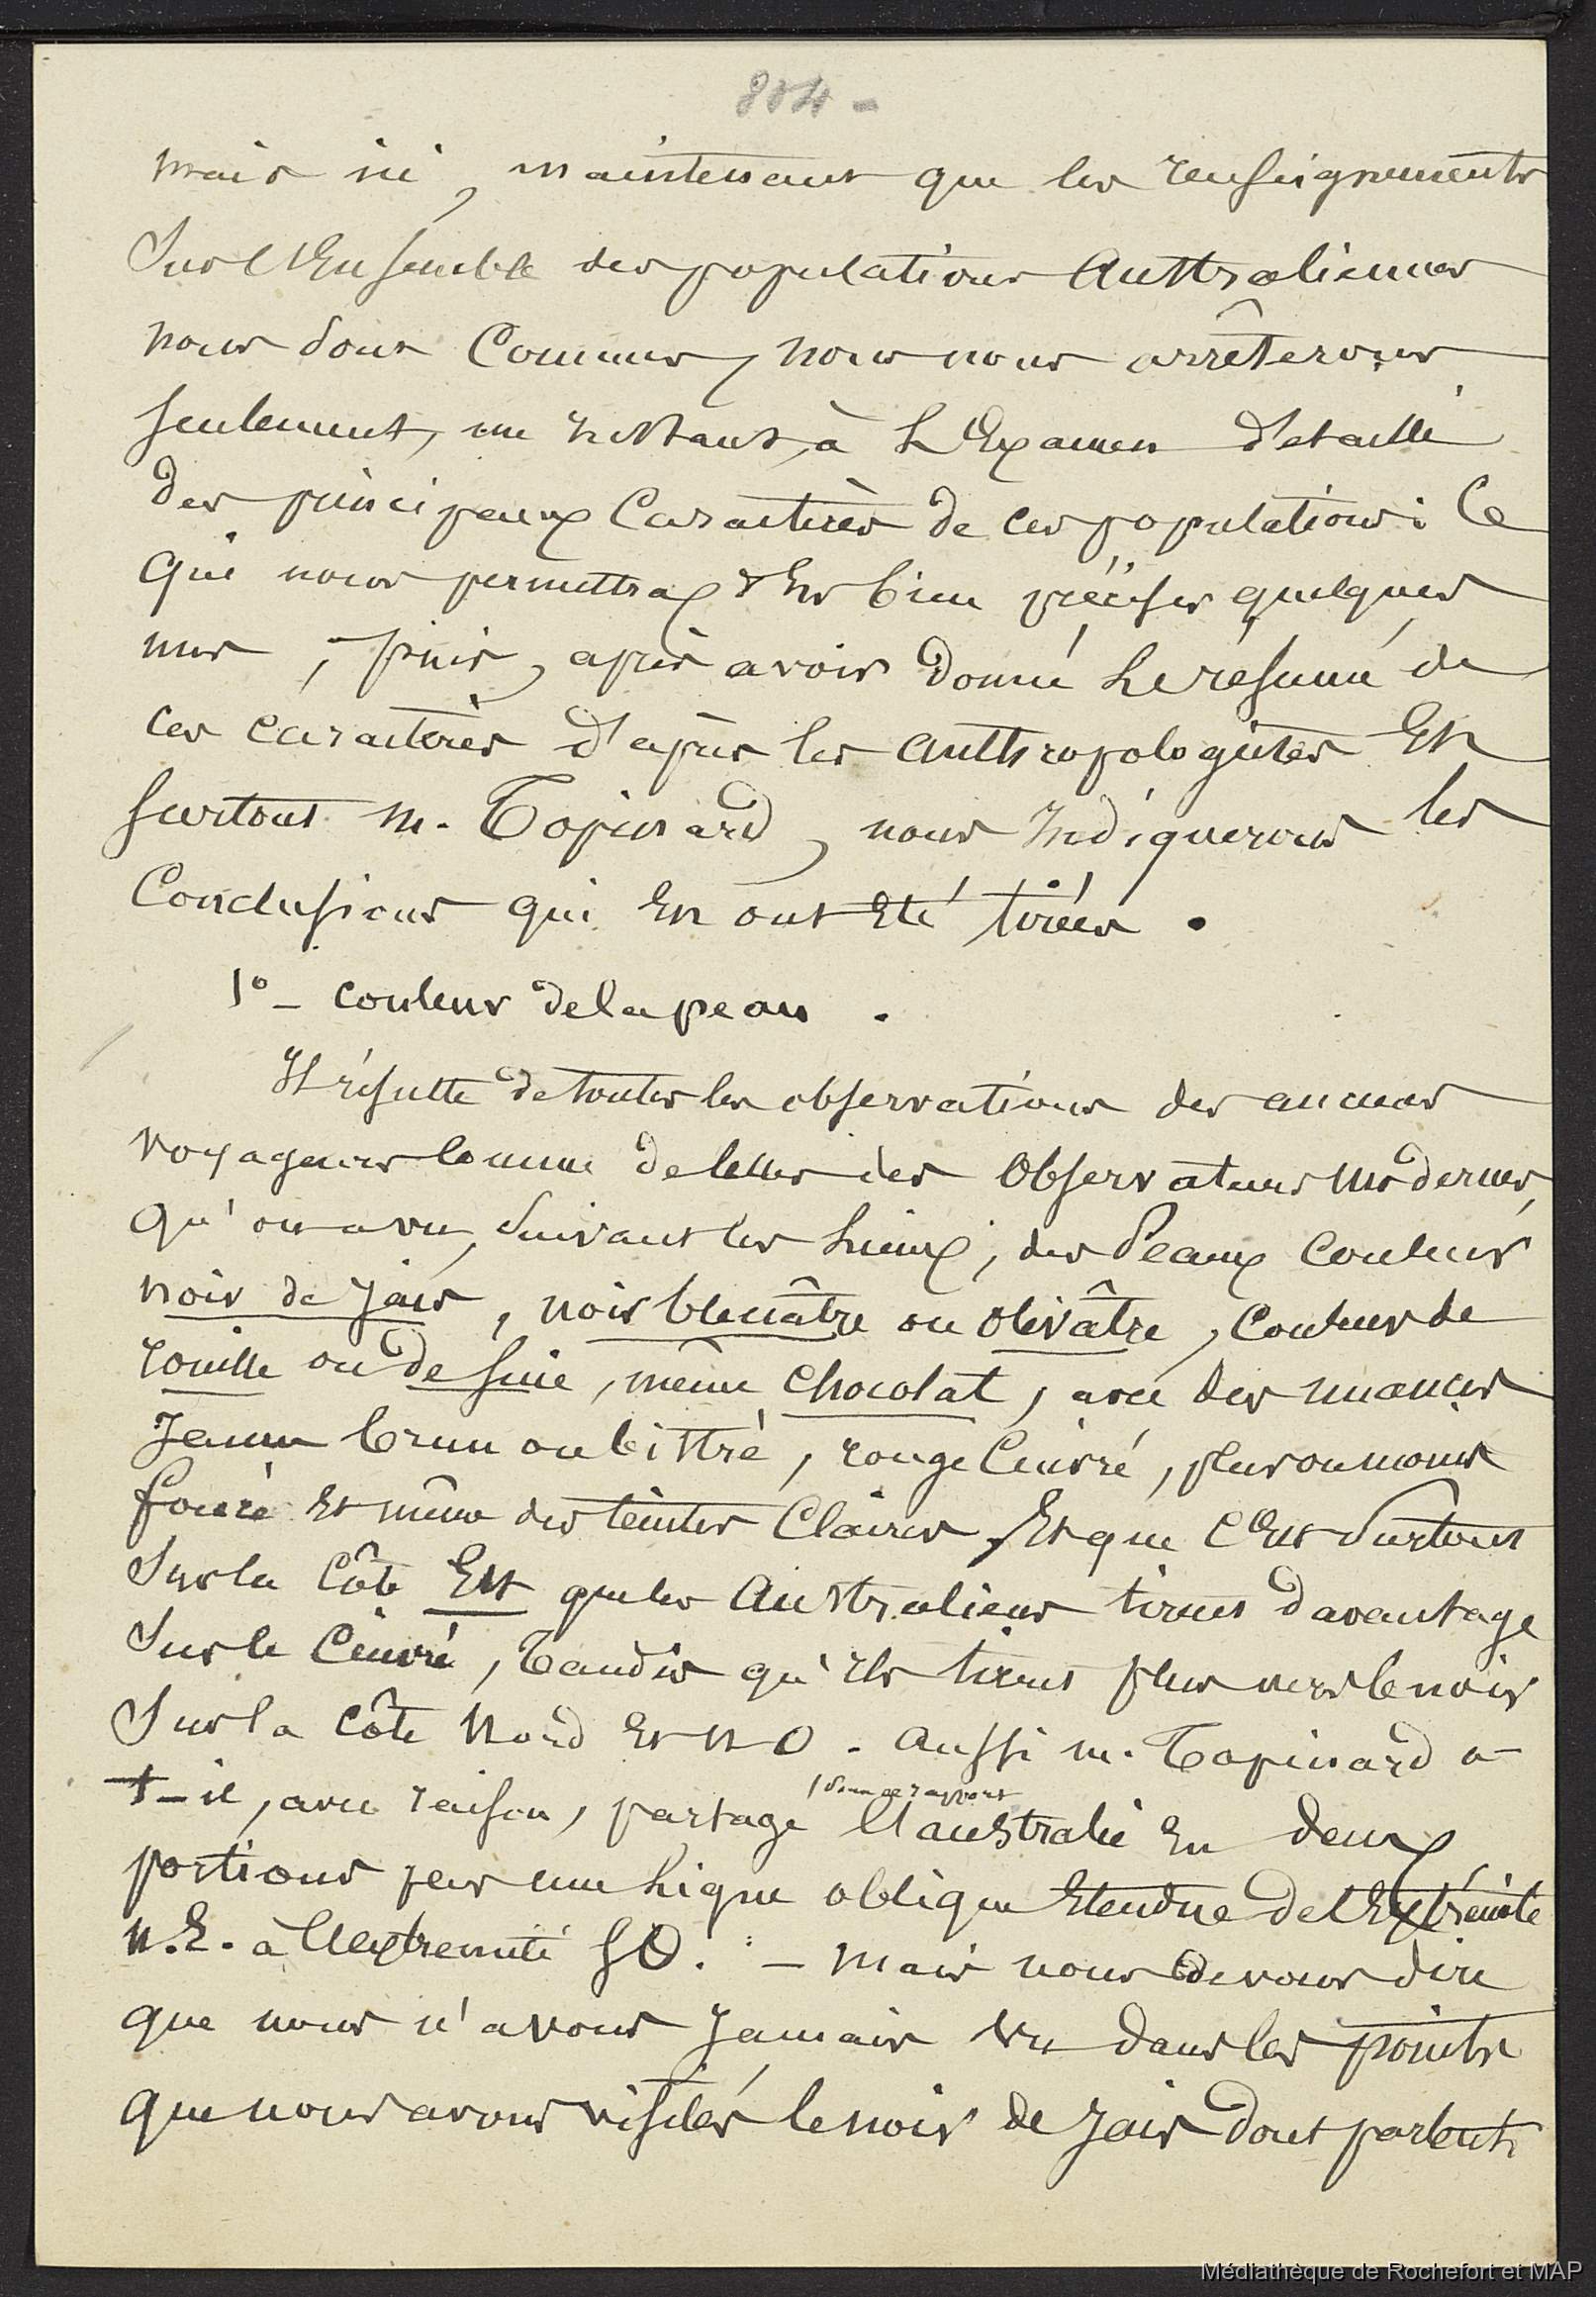 804 -
mais ici, maintenant que les renseignements
Sur l'Ensemble des populations Australiennes
nous sont Connues, nous nous arrêterons
seulement, un instant, à L'Examen détaillé
des principaux Caractères de ces populations : Ce
qui nous permettra d'en bien préciser quelques
uns ; puis, après avoir donné Le résumé de
ces caractères d'après les anthropologistes Et
surtout M. Topinard, nous Indiquerons les
Conclusions qui En ont Eté tirées.
1° - couleur de la peau.
Il résulte de toutes les observations des anciens
voyageurs Comme de celles des Observateurs modernes,
qu'on a vu, Suivant les Lieux, des Peaux Couleur
noir de Jais, noir bleuâtre ou olivâtre, Couleur de
rouille ou de suie, même Chocolat, avec des nuances
Jaune brun ou bistré, rouge Cuivré, plus ou moins
foncé Et même des teintes Claires, Et que C'Est Surtout
Sur la Côte Est que les Australiens tirent davantage
Sur le Cuivré, Tandis qu'Ils tirent plus vers le noir
Sur la Côte Nord Et N O. Aussi M. Topinard a-
t-il, avec raison, partagé (sous ce rapport
L'australie En deux
portions par une Ligne oblique Etendue de l'Extrémité
N.E. à L'extremité S O. - Mais nous devons dire
que nous n'avons Jamais vu dans les points
que nous avons visités le noir de Jais dont parlent
Médiathèque de Rochefort et MAP